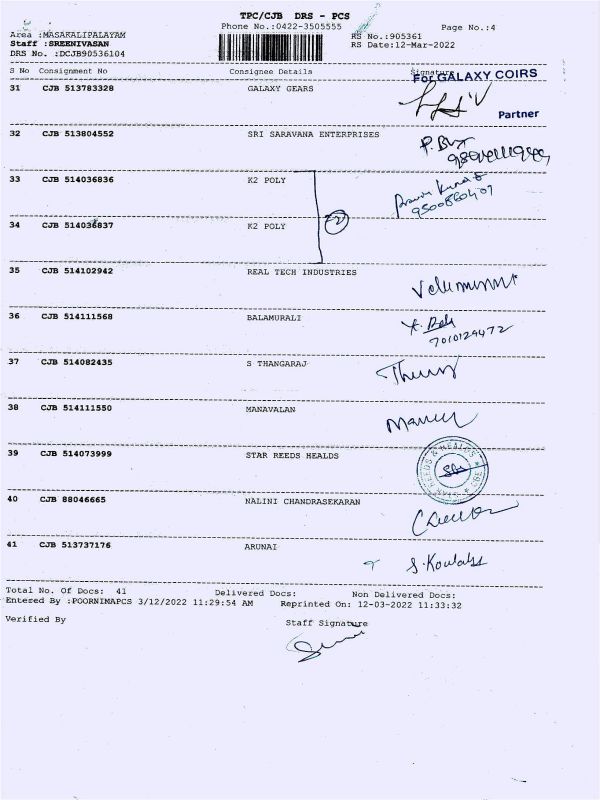 TPC/CJB DRS - PCS
Phone No.:0422-3505555 Page No.:4
Area :MASAKALIPALAYAM RS No.:905361
Staff :SREENIVASAN RS Date:12-Mar-2022
DRS No. :DCJB90536104
S No Consignment No Consignee Details Signature
For GALAXY COIRS
31 CJB 513783328 GALAXY GEARS
Partner
32 CJB 513804552 SRI SARAVANA ENTERPRISES
33 CJB 514036836 K2 POLY
2
34 CJB 514036837 K2 POLY
35 CJB 514102942 REAL TECH INDUSTRIES
36 CJB 514111568 BALAMURALI
7010129472
37 CJB 514082435 S THANGARAJ
38 CJB 514111550 MANAVALAN
39 CJB 514073999 STAR REEDS HEALDS
40 CJB 88046665 NALINI CHANDRASEKARAN
41 CJB 513737176 ARUNAI
Total No. Of Docs: 41 Delivered Docs: Non Delivered Docs:
Entered By :POORNIMAPCS 3/12/2022 11:29:54 AM Reprinted On: 12-03-2022 11:33:32
Verified By Staff Signature